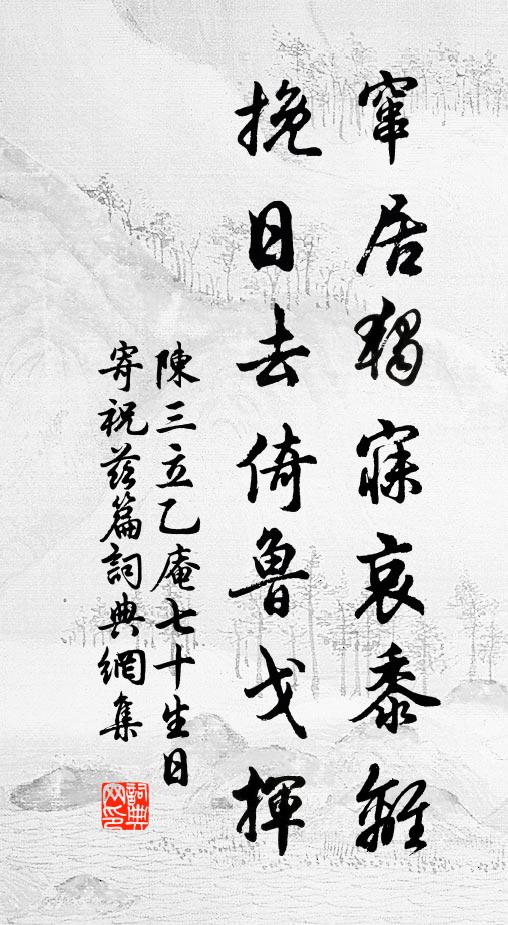 窜居獨寐哀黍離
挽日去倚魯戈揮
陳三立乙庵七十生日
寄祝茲篇詞典網集
詞典网印